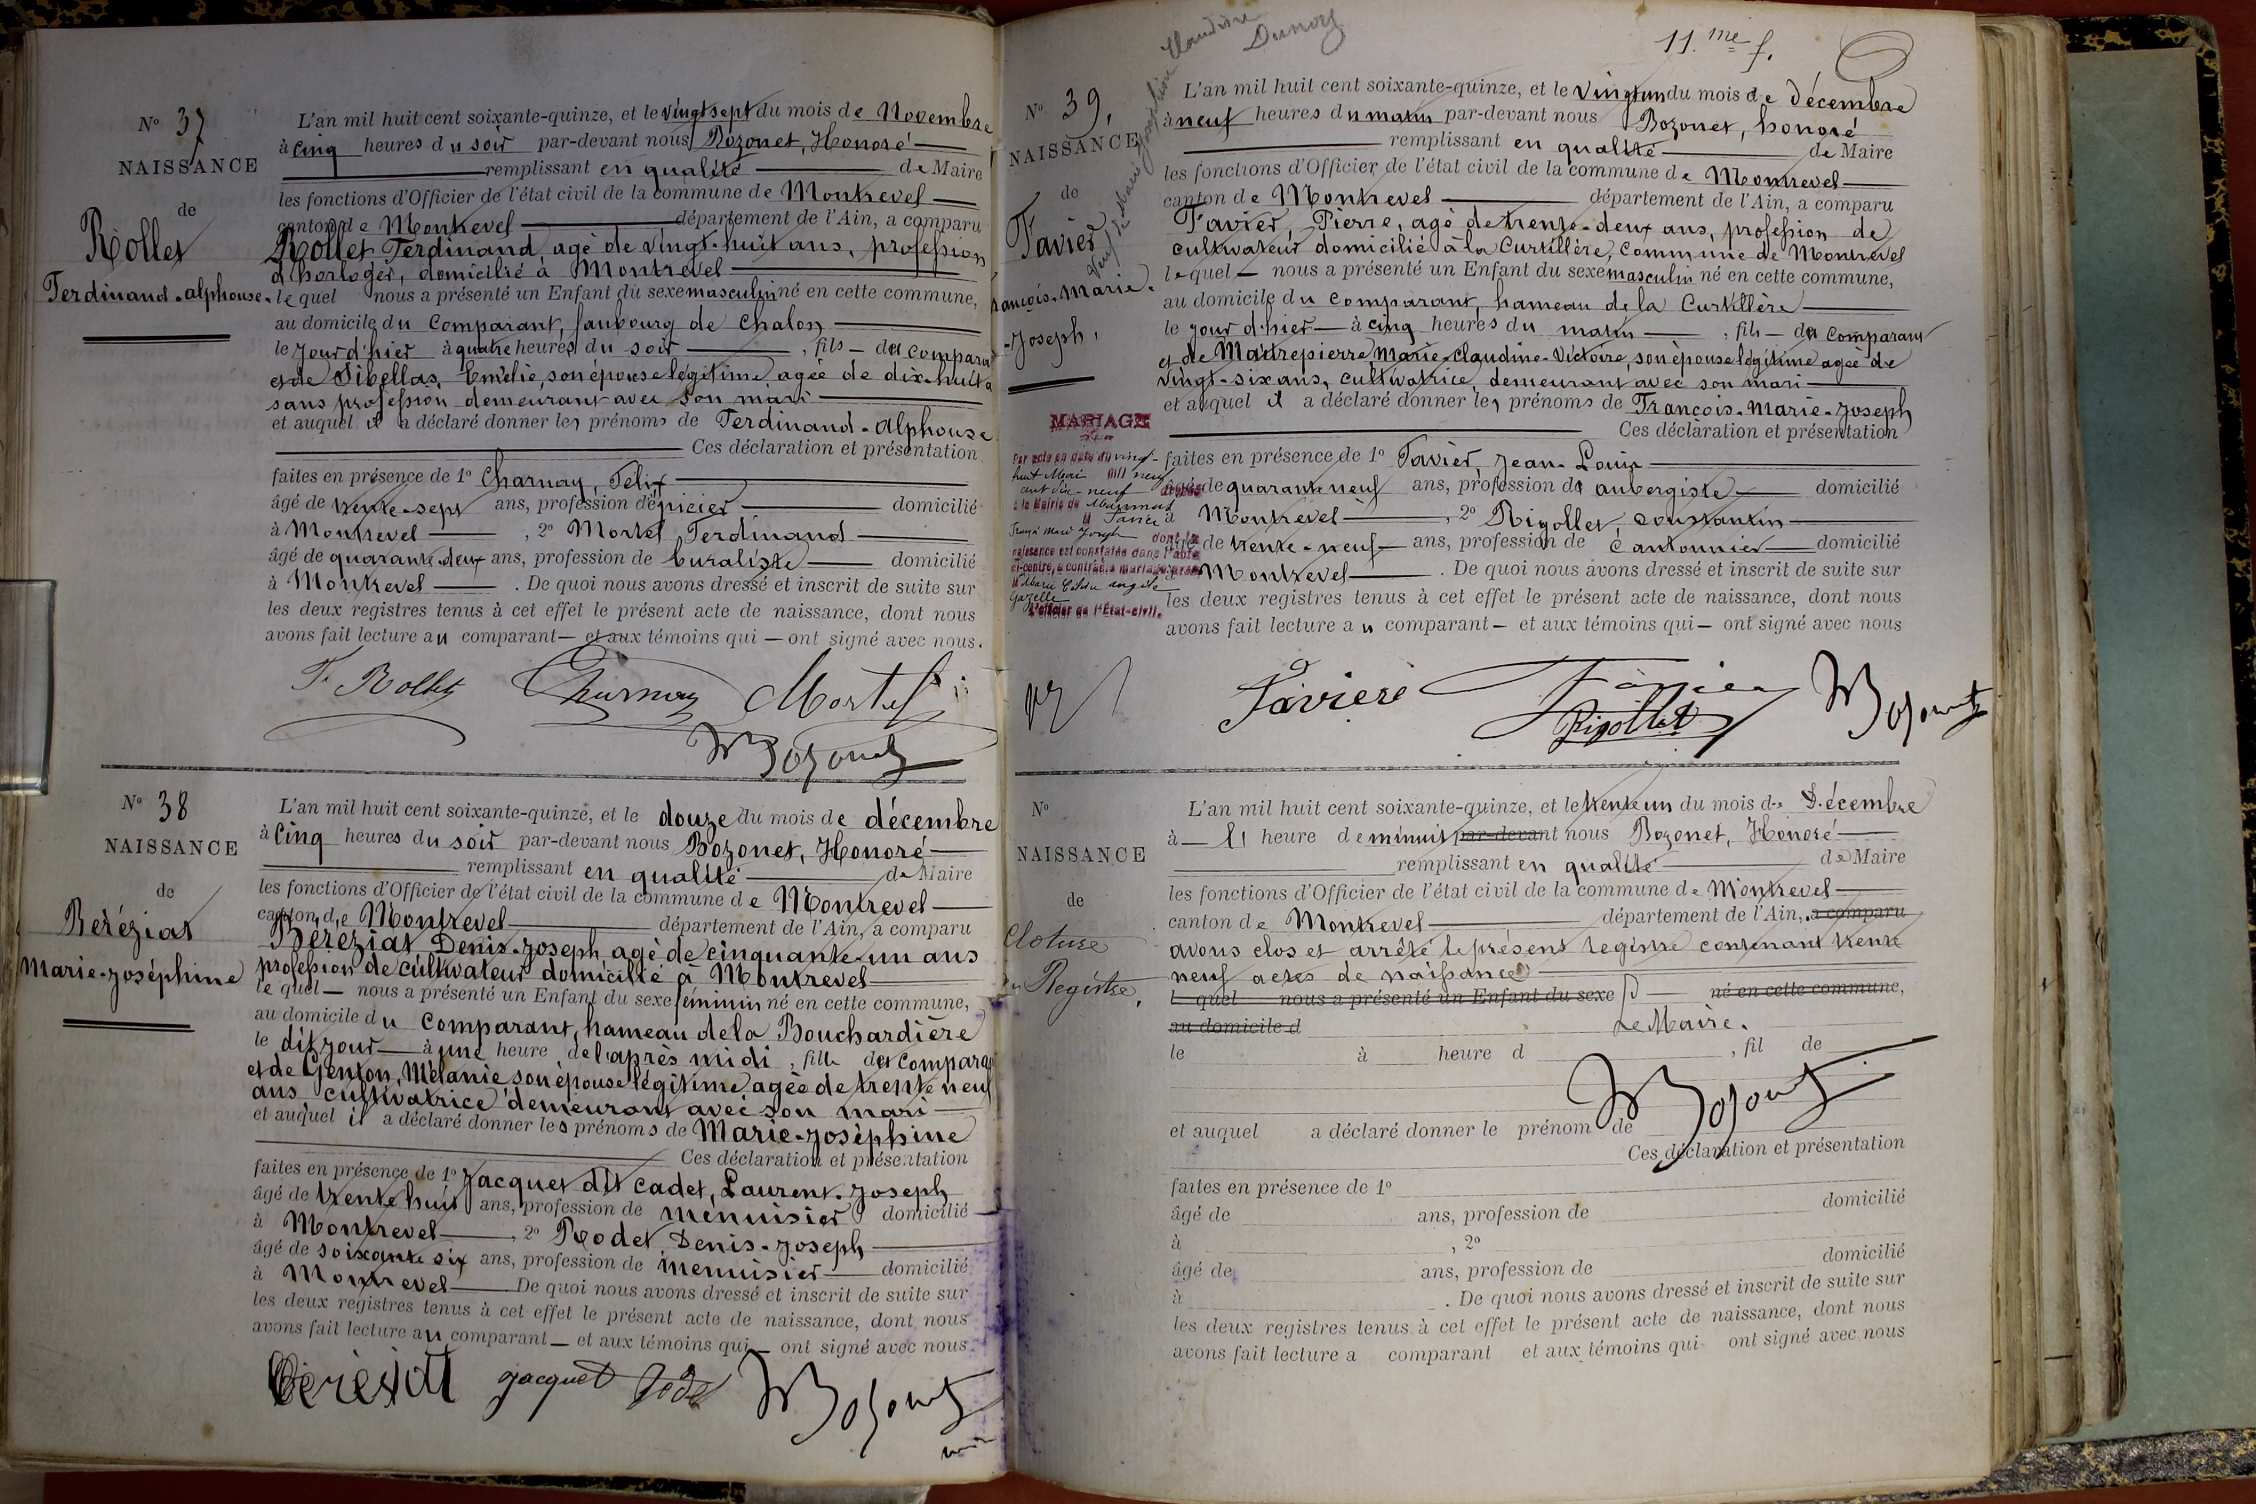 N° 37
NAISSANCE
de
Rollet
Ferdinand-alphonse.
L'an mil huit cent soixante-quinze, et le vingt sept du mois de Novembre
à cinq heures du soir par-devant nous Bozonet, Honoré
remplissant en qualité de Maire
les fonctions d'Officier de l'état civil de la commune de Montrevel
canton de Montrevel département de l'Ain, a comparu
Rollet, Ferdinand, agé de vingt-huit ans, profession
d'horloger, domicilié à Montrevel
lequel nous a présenté un Enfant du sexe masculin né en cette commune,
au domicile du Comparant, faubourg de Chalon
le jour d'hier à quatre heures du soir, fils du Comparant
et de Sibellas, Emélie, son épouse légitime, agée de dix-huit a
sans profession demeurant avec son mari
et auquel il a déclaré donner les prénoms de Ferdinand-alphonse
Ces déclaration et présentation
faites en présence de 1° Charnay, Félix
âgé de trente-sept ans, profession d'épicier domicilié
à Montrevel, 2° Mortel, Ferdinand
âgé de quarante-deux ans, profession de buraliste domicilié
à Montrevel. De quoi nous avons dressé et inscrit de suite sur
les deux registres tenus à cet effet le présent acte de naissance, dont nous
avons fait lecture au comparant et aux témoins qui ont signé avec nous.
F. Rollet Charnay Mortel
Bozonet
N° 38
NAISSANCE
de
Beréziat
Marie-Joséphine
L'an mil huit cent soixante-quinze, et le douze du mois de décembre
à cinq heures du soir par-devant nous Bozonet, Honoré
remplissant en qualité de Maire
les fonctions d'Officier de l'état civil de la commune de Montrevel
canton de Montrevel département de l'Ain, a comparu
Beréziat Denis-Joseph agé de cinquante-un ans
profession de cultivateur domicilié à Montrevel
lequel nous a présenté un Enfant du sexe féminin né en cette commune,
au domicile du Comparant, hameau de la Bouchardière
le dit jour à une heure de l'après midi, fille du Comparant
et de Genton, Mélanie son épouse légitime agée de trente neuf
ans cultivatrice demeurant avec son mari
et auquel il a déclaré donner les prénoms de Marie-Joséphine
Ces déclaration et présentation
faites en présence de 1° Jacquet dit cadet, Laurent-Joseph
âgé de trente huit ans, profession de menuisier domicilié
à Montrevel, 2° Rodet, Denis-Joseph
âgé de soixante six ans, profession de menuisier domicilié
à Montrevel De quoi nous avons dressé et inscrit de suite sur
les deux registres tenus à cet effet le présent acte de naissance, dont nous
avons fait lecture au comparant et aux témoins qui ont signé avec nous.
Béréziat Jacquet Rodet Bozonet
Claudine
Dunoy
11.me f.
N° 39.
NAISSANCE
de
Favier
François-Marie-
-Joseph,
L'an mil huit cent soixante-quinze, et le vingt un du mois de décembre
à neuf heures du matin par-devant nous Bozonet, honoré
remplissant en qualité de Maire
les fonctions d'Officier de l'état civil de la commune de Montrevel
canton de Montrevel département de l'Ain, a comparu
Favier, Pierre, agé de trente-deux ans, profession de
cultivateur domicilié à la Curtillère, Commune de Montrevel
lequel nous a présenté un Enfant du sexe masculin né en cette commune,
au domicile du Comparant, hameau de la Curtillère
le jour d'hier à cinq heures du matin, fils du Comparant
et de Maitrepierre, Marie-Claudine-Victoire, son épouse légitime agée de
vingt-six ans, cultivatrice demeurant avec son mari
et auquel il a déclaré donner les prénoms de François-Marie-Joseph
Ces déclaration et présentation
faites en présence de 1° Favier, Jean-Louis
âgé de quarante neuf ans, profession d'aubergiste domicilié
à Montrevel, 2° Rigollet, Constantin
âgé de trente-neuf ans, profession de Cantonnier domicilié
à Montrevel. De quoi nous avons dressé et inscrit de suite sur
les deux registres tenus à cet effet le présent acte de naissance, dont nous
avons fait lecture au comparant et aux témoins qui ont signé avec nous
MARIAGE
Par acte en date du vingt-
huit Mai mil neuf
cent dix-neuf dressé
à la Mairie de
le Favier
François Marie Joseph dont la
naissance est constatée dans l'acte
ci-contre, a contracté mariage avec
Marie
L'officier de l'État-civil.
Favier Favier
Rigollet Bozonet
N°
NAISSANCE
de
Cloture
du Registre.
L'an mil huit cent soixante-quinze, et le trente un du mois de Décembre
à 11 heure de minuit par-devant nous Bozonet, Honoré
remplissant en qualité de Maire
les fonctions d'Officier de l'état civil de la commune de Montrevel
canton de Montrevel département de l'Ain, a comparu
avons clos et arrêté le présent registre contenant trente
neuf actes de naissance
l quel nous a présenté un Enfant du sexe né en cette commune,
au domicile d Le Maire.
le à heure d , fil de
Bozonet
et auquel a déclaré donner le prénom de
Ces déclaration et présentation
faites en présence de 1°
âgé de ans, profession de domicilié
à , 2°
âgé de ans, profession de domicilié
à . De quoi nous avons dressé et inscrit de suite sur
les deux registres tenus à cet effet le présent acte de naissance, dont nous
avons fait lecture a comparant et aux témoins qui ont signé avec nous